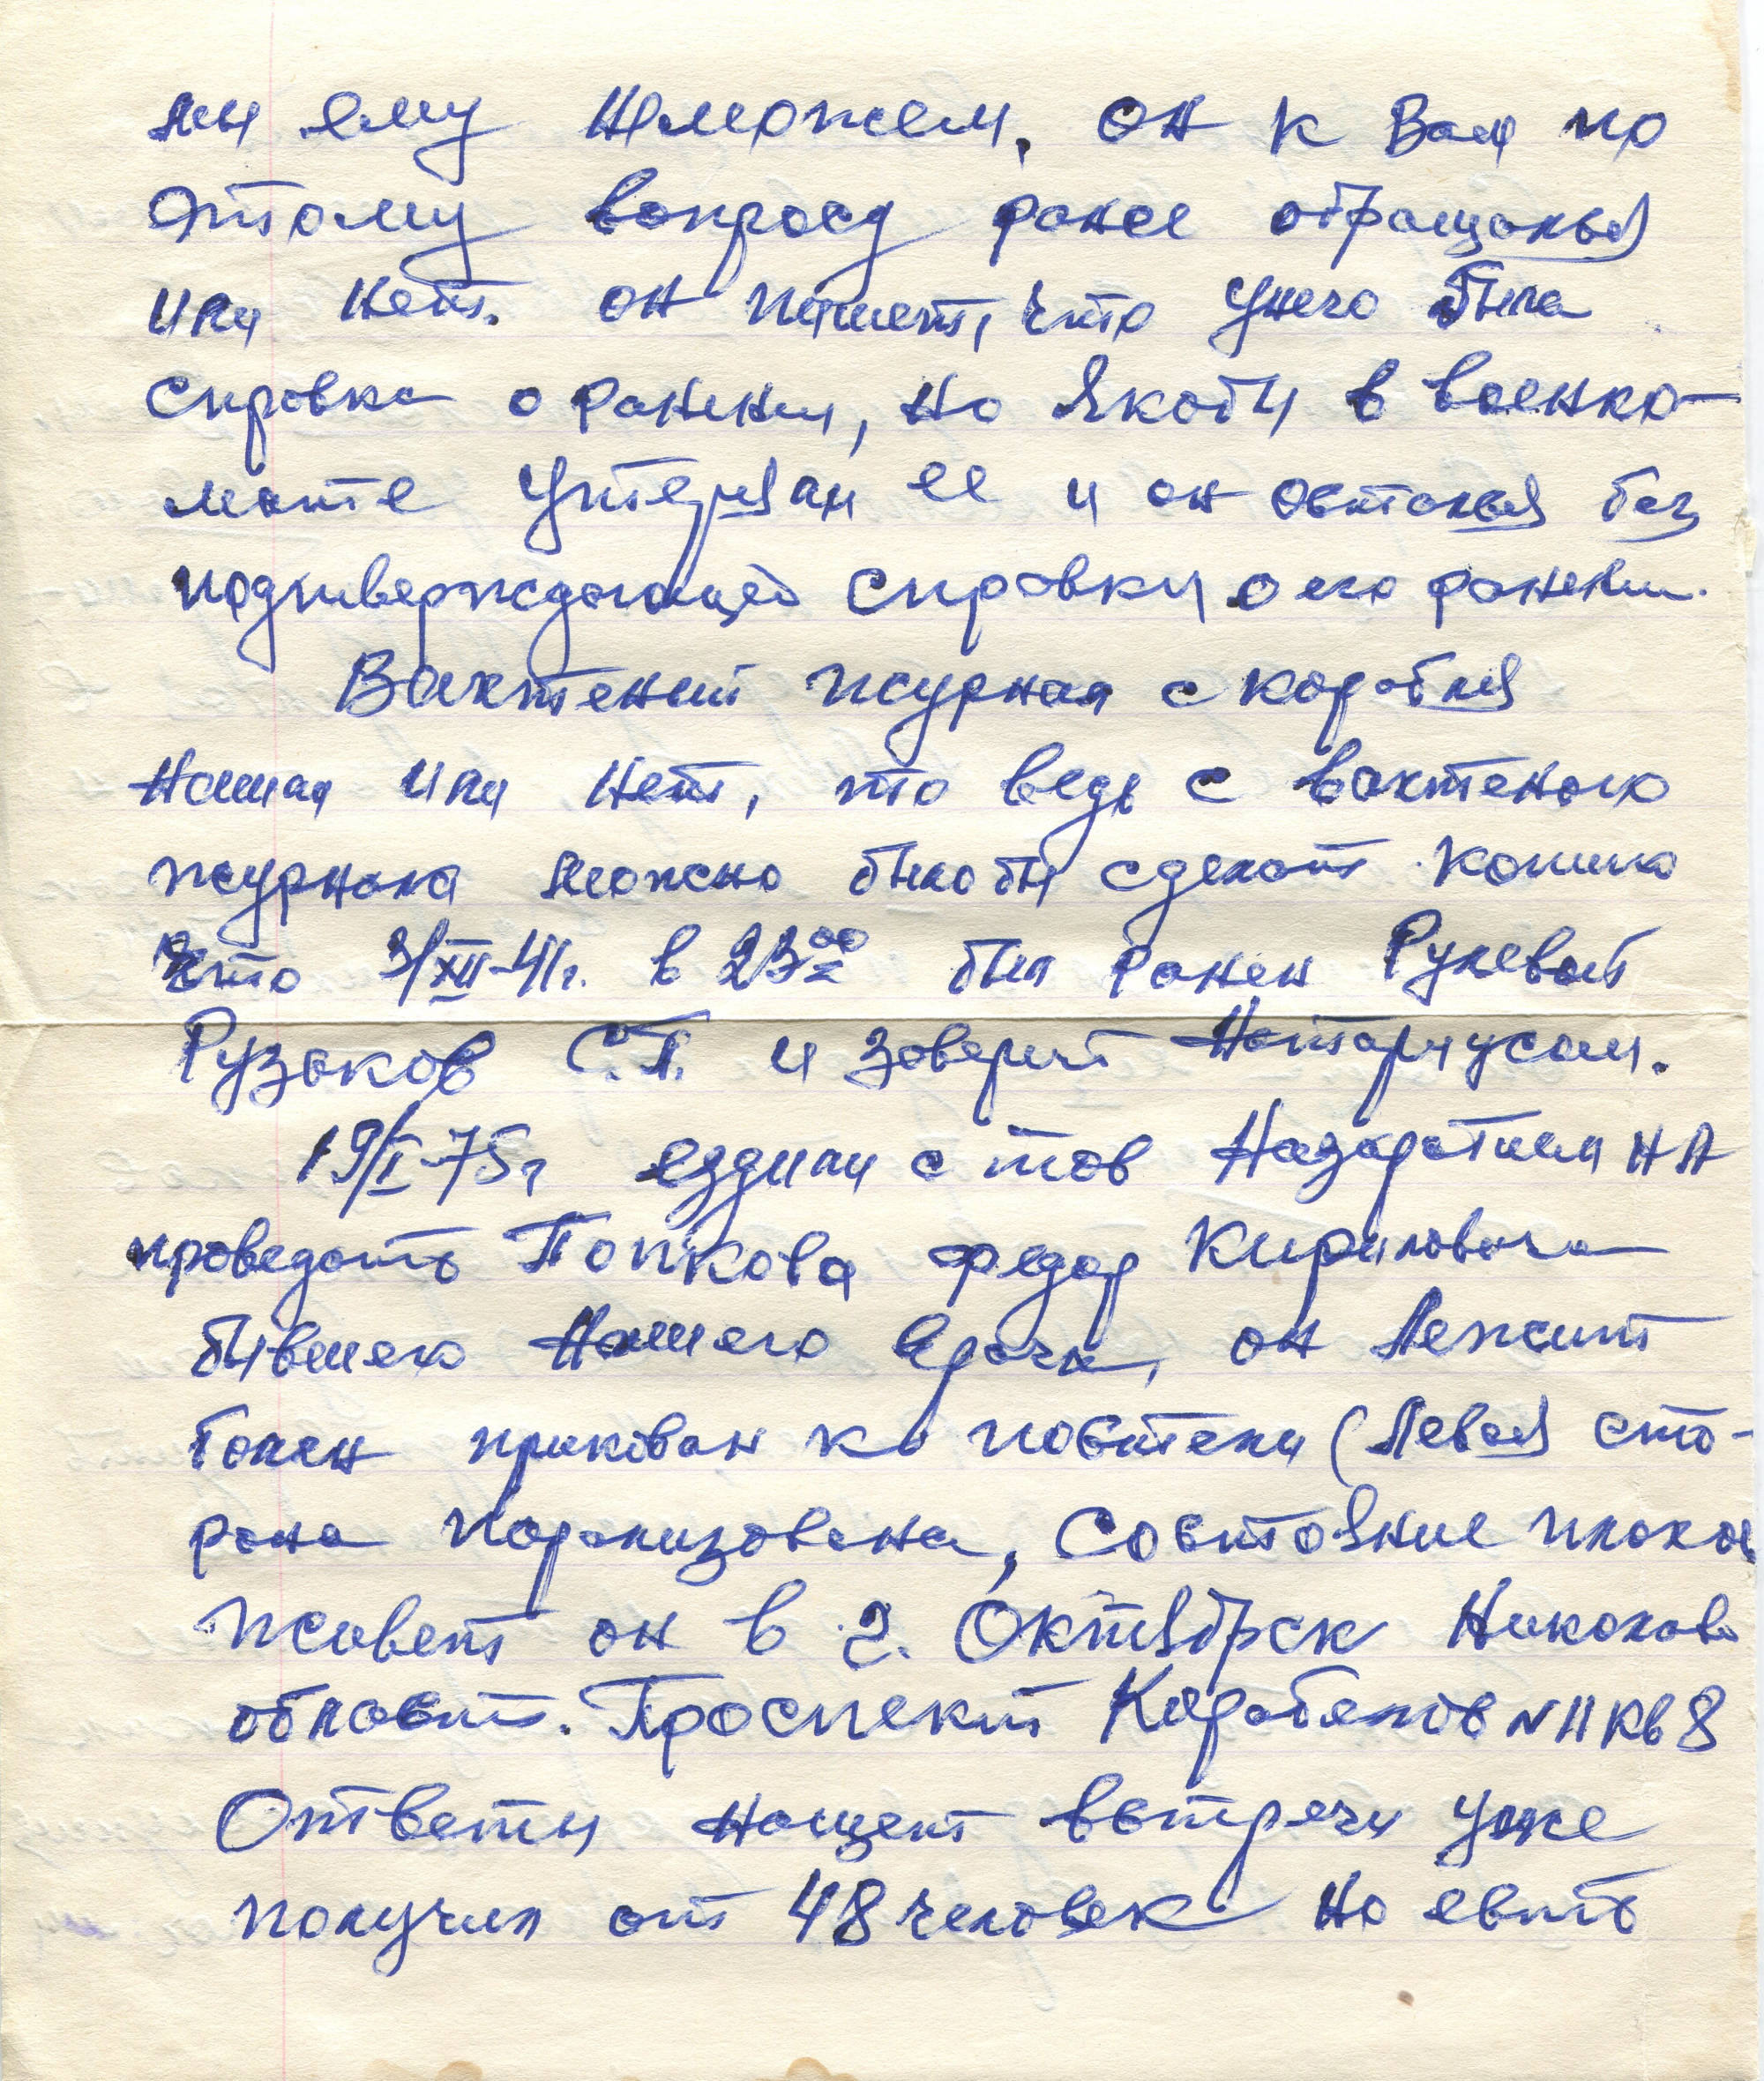 мы ему неможем, он к Вам по
этому вопросу ранее обращался
или нет. он пишет, что унего была
справка о ранении, но якобы в военко-
мате утеряли ее и он остался без
подтверждающей справки о его ранении.
Вахтений журнал с корабля
нашли или нет, то ведь с вахтеного
журнала можно былобы сделать копию
что 3/XII-41г. в 23⁰⁰ был ранен Рулевой
Рузаков С.П. и заверит нотариусом.
19/I-75г ездили с тов Назаратием НА
проведать Попкова Федор Кириловича
бывшего нашего врача, он лежит
болен прикован к постели (левая сто-
рона парализована, состояние плохое
живет он в г. Октябрск Николаев
област. Проспект Корабелов N 11 кв 8
Ответы нащет встречи уже
получил от 48 человек но есть